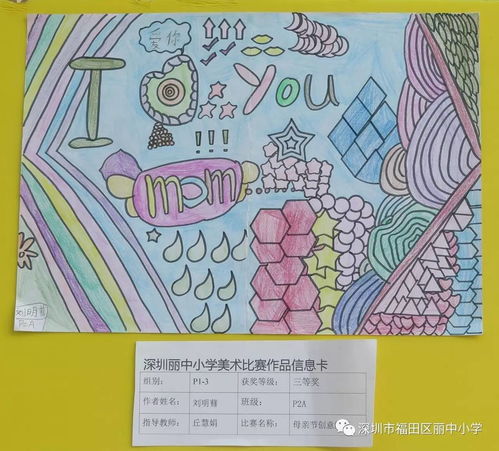 爱你
I
You
!!!
mom
刘明彗
P2A
深圳丽中小学美术比赛作品信息卡
组别: P1-3 获奖等级: 三等奖
作者姓名: 刘明彗 班级: P2A
指导教师: 丘慧娟 比赛名称: 母亲节创意
深圳市福田区丽中小学